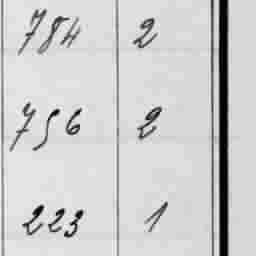 784 2
756 2
223 1